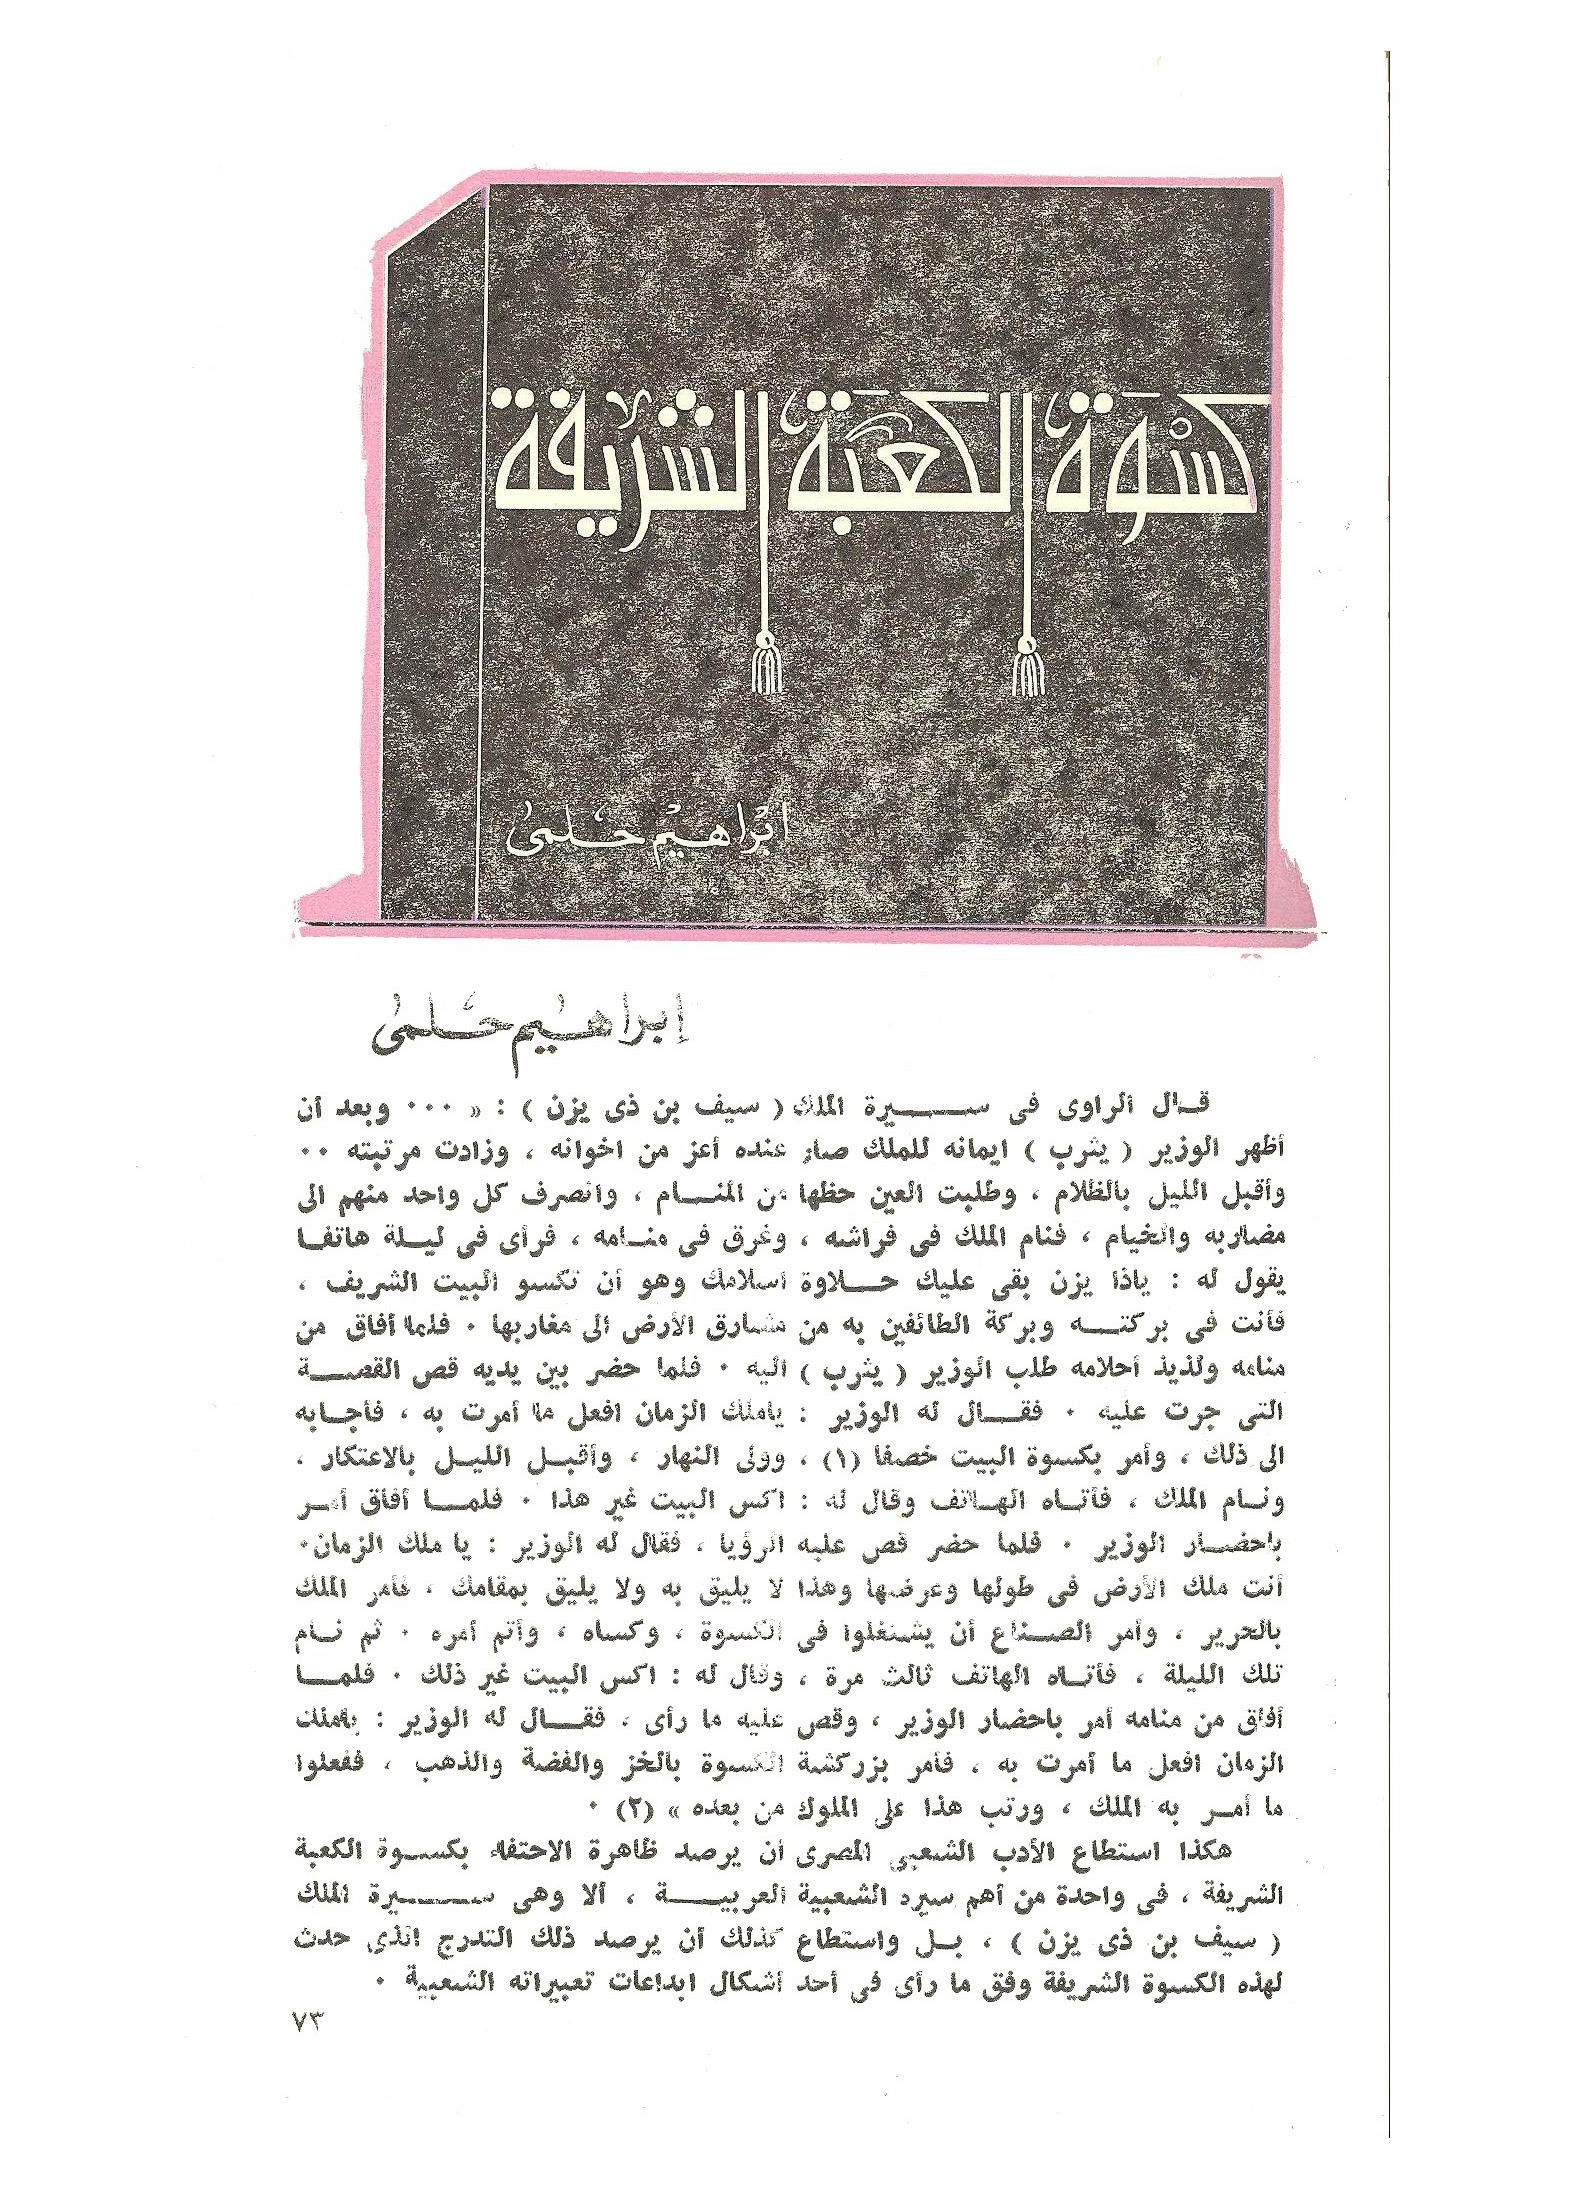 كسْوَة الكعبَة الشريفة
ابراهيم حلمى
إبراهيم حلمى
قال الراوى فى سيرة الملك ( سيف بن ذى يزن ) : « ٠٠٠ وبعد أن
أظهر الوزير ( يثرب ) ايمانه للملك صار عنده أعز من اخوانه ، وزادت مرتبته ٠٠
وأقبل الليل بالظلام ، وطلبت العين حظها من المنام ، وانصرف كل واحد منهم الى
مضاربه والخيام ، فنام الملك فى فراشه ، وغرق فى منامه ، فرأى فى ليلة هاتفا
يقول له : ياذا يزن بقى عليك حلاوة اسلامك وهو أن تكسو البيت الشريف ،
فأنت فى بركته وبركة الطائفين به من مشارق الأرض الى مغاربها ٠ فلما أفاق من
منامه ولذيذ أحلامه طلب الوزير ( يثرب ) اليه ٠ فلما حضر بين يديه قص القصة
التى جرت عليه ٠ فقال له الوزير : ياملك الزمان افعل ما أمرت به ، فأجابه
الى ذلك ، وأمر بكسوة البيت خصفا (١) ، وولى النهار ، وأقبل الليل بالاعتكار ،
ونام الملك ، فأتاه الهاتف وقال له : اكس البيت غير هذا ٠ فلما أفاق أمر
باحضار الوزير ٠ فلما حضر قص عليه الرؤيا ، فقال له الوزير : يا ملك الزمان٠
أنت ملك الأرض فى طولها وعرضها وهذا لا يليق به ولا يليق بمقامك ، فأمر الملك
بالحرير ، وأمر الصناع أن يشتغلوا فى الكسوة ، وكساه ، وأتم أمره ٠ ثم نام
تلك الليلة ، فأتاه الهاتف ثالث مرة ، وقال له : اكس البيت غير ذلك ٠ فلما
أفاق من منامه أمر باحضار الوزير ، وقص عليه ما رأى ، فقال له الوزير : ياملك
الزمان افعل ما أمرت به ، فأمر بزركشة الكسوة بالخز والفضة والذهب ، ففعلوا
ما أمر به الملك ، ورتب هذا على الملوك من بعده » (٢) ٠
هكذا استطاع الأدب الشعبى المصرى أن يرصد ظاهرة الاحتفاء بكسوة الكعبة
الشريفة ، فى واحدة من أهم سيره الشعبية العربية ، ألا وهى سيرة الملك
( سيف بن ذى يزن ) ، بل واستطاع كذلك أن يرصد ذلك التدرج الذى حدث
لهذه الكسوة الشريفة وفق ما رأى فى أحد أشكال ابداعات تعبيراته الشعبية ٠
٧٣